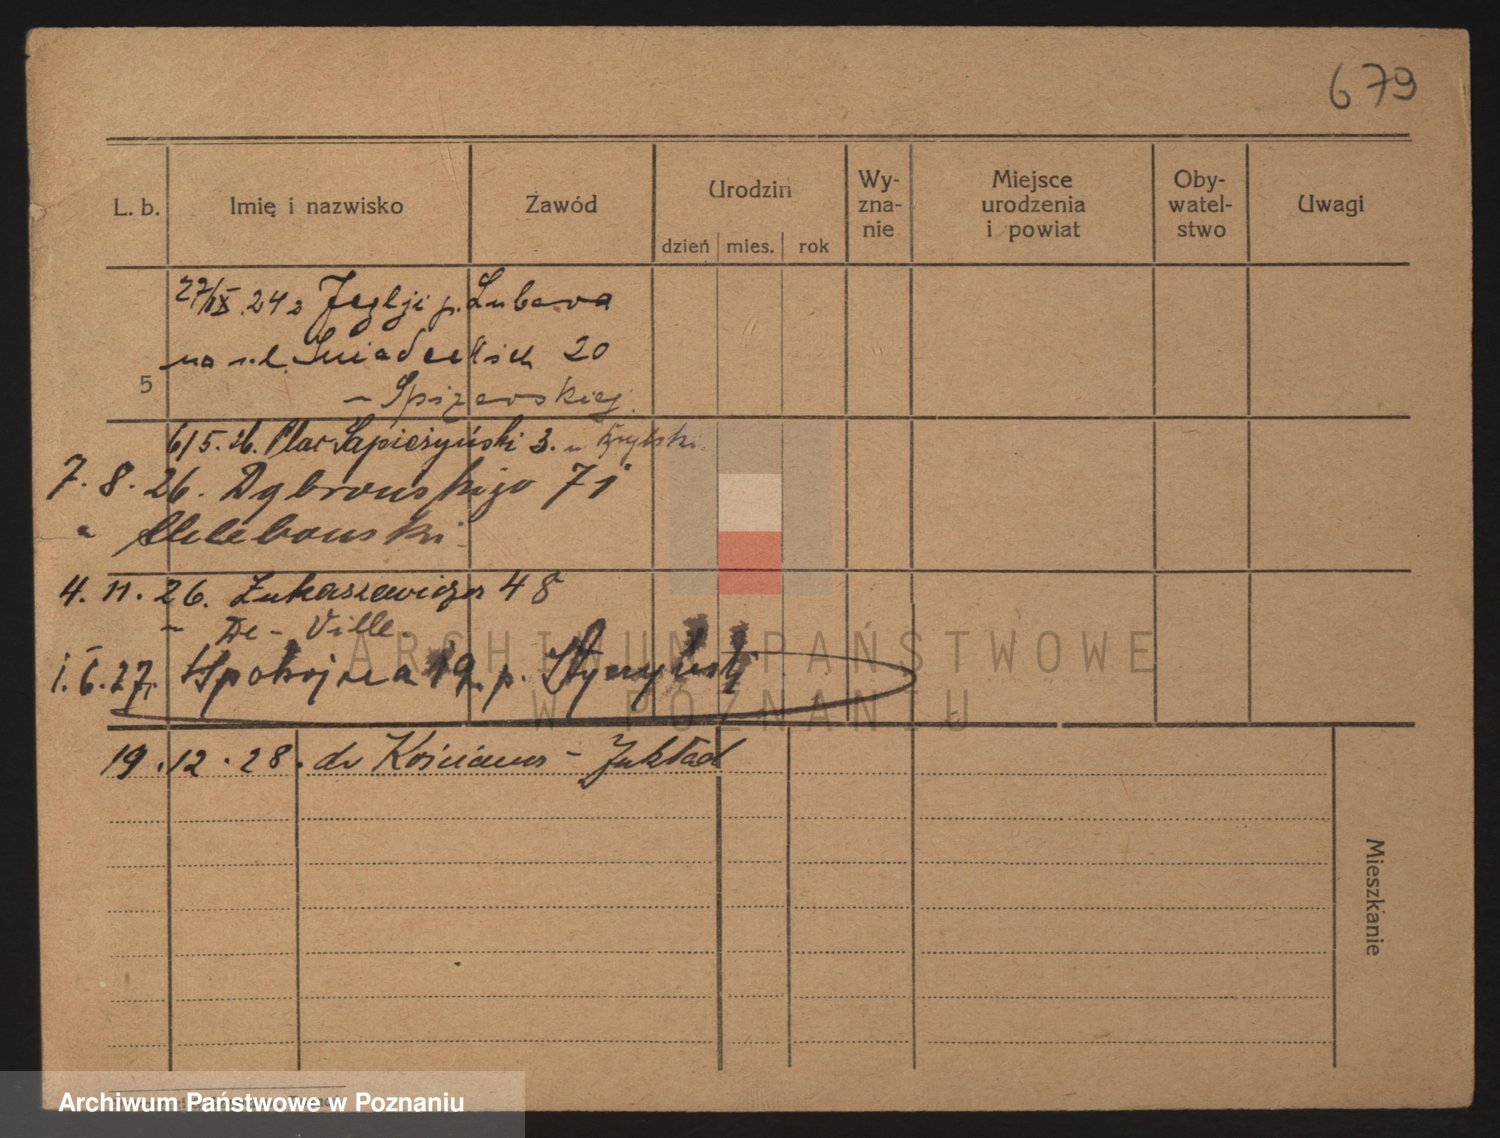 679
L. b. Imię i nazwisko Zawód Urodzin Wy- zna- nie Miejsce urodzenia i powiat Oby- watel- stwo Uwagi
dzień mies. rok
27/IX.24 z p. Lubawa
na ul. Śniadeckich 20
5
6/5.26. Plac Sapieżyński 3. u
7.8.26. Dąbrowskigo 71
4.11.26. Łukaszewicza 48
- De-Ville.
1.6.27. Spokojna 19. p.
ARCHIWUM PAŃSTWOWE
W POZNANIU
19.12.28. do Kościana - Zakład
Mieszkanie
Archiwum Państwowe w Poznaniu